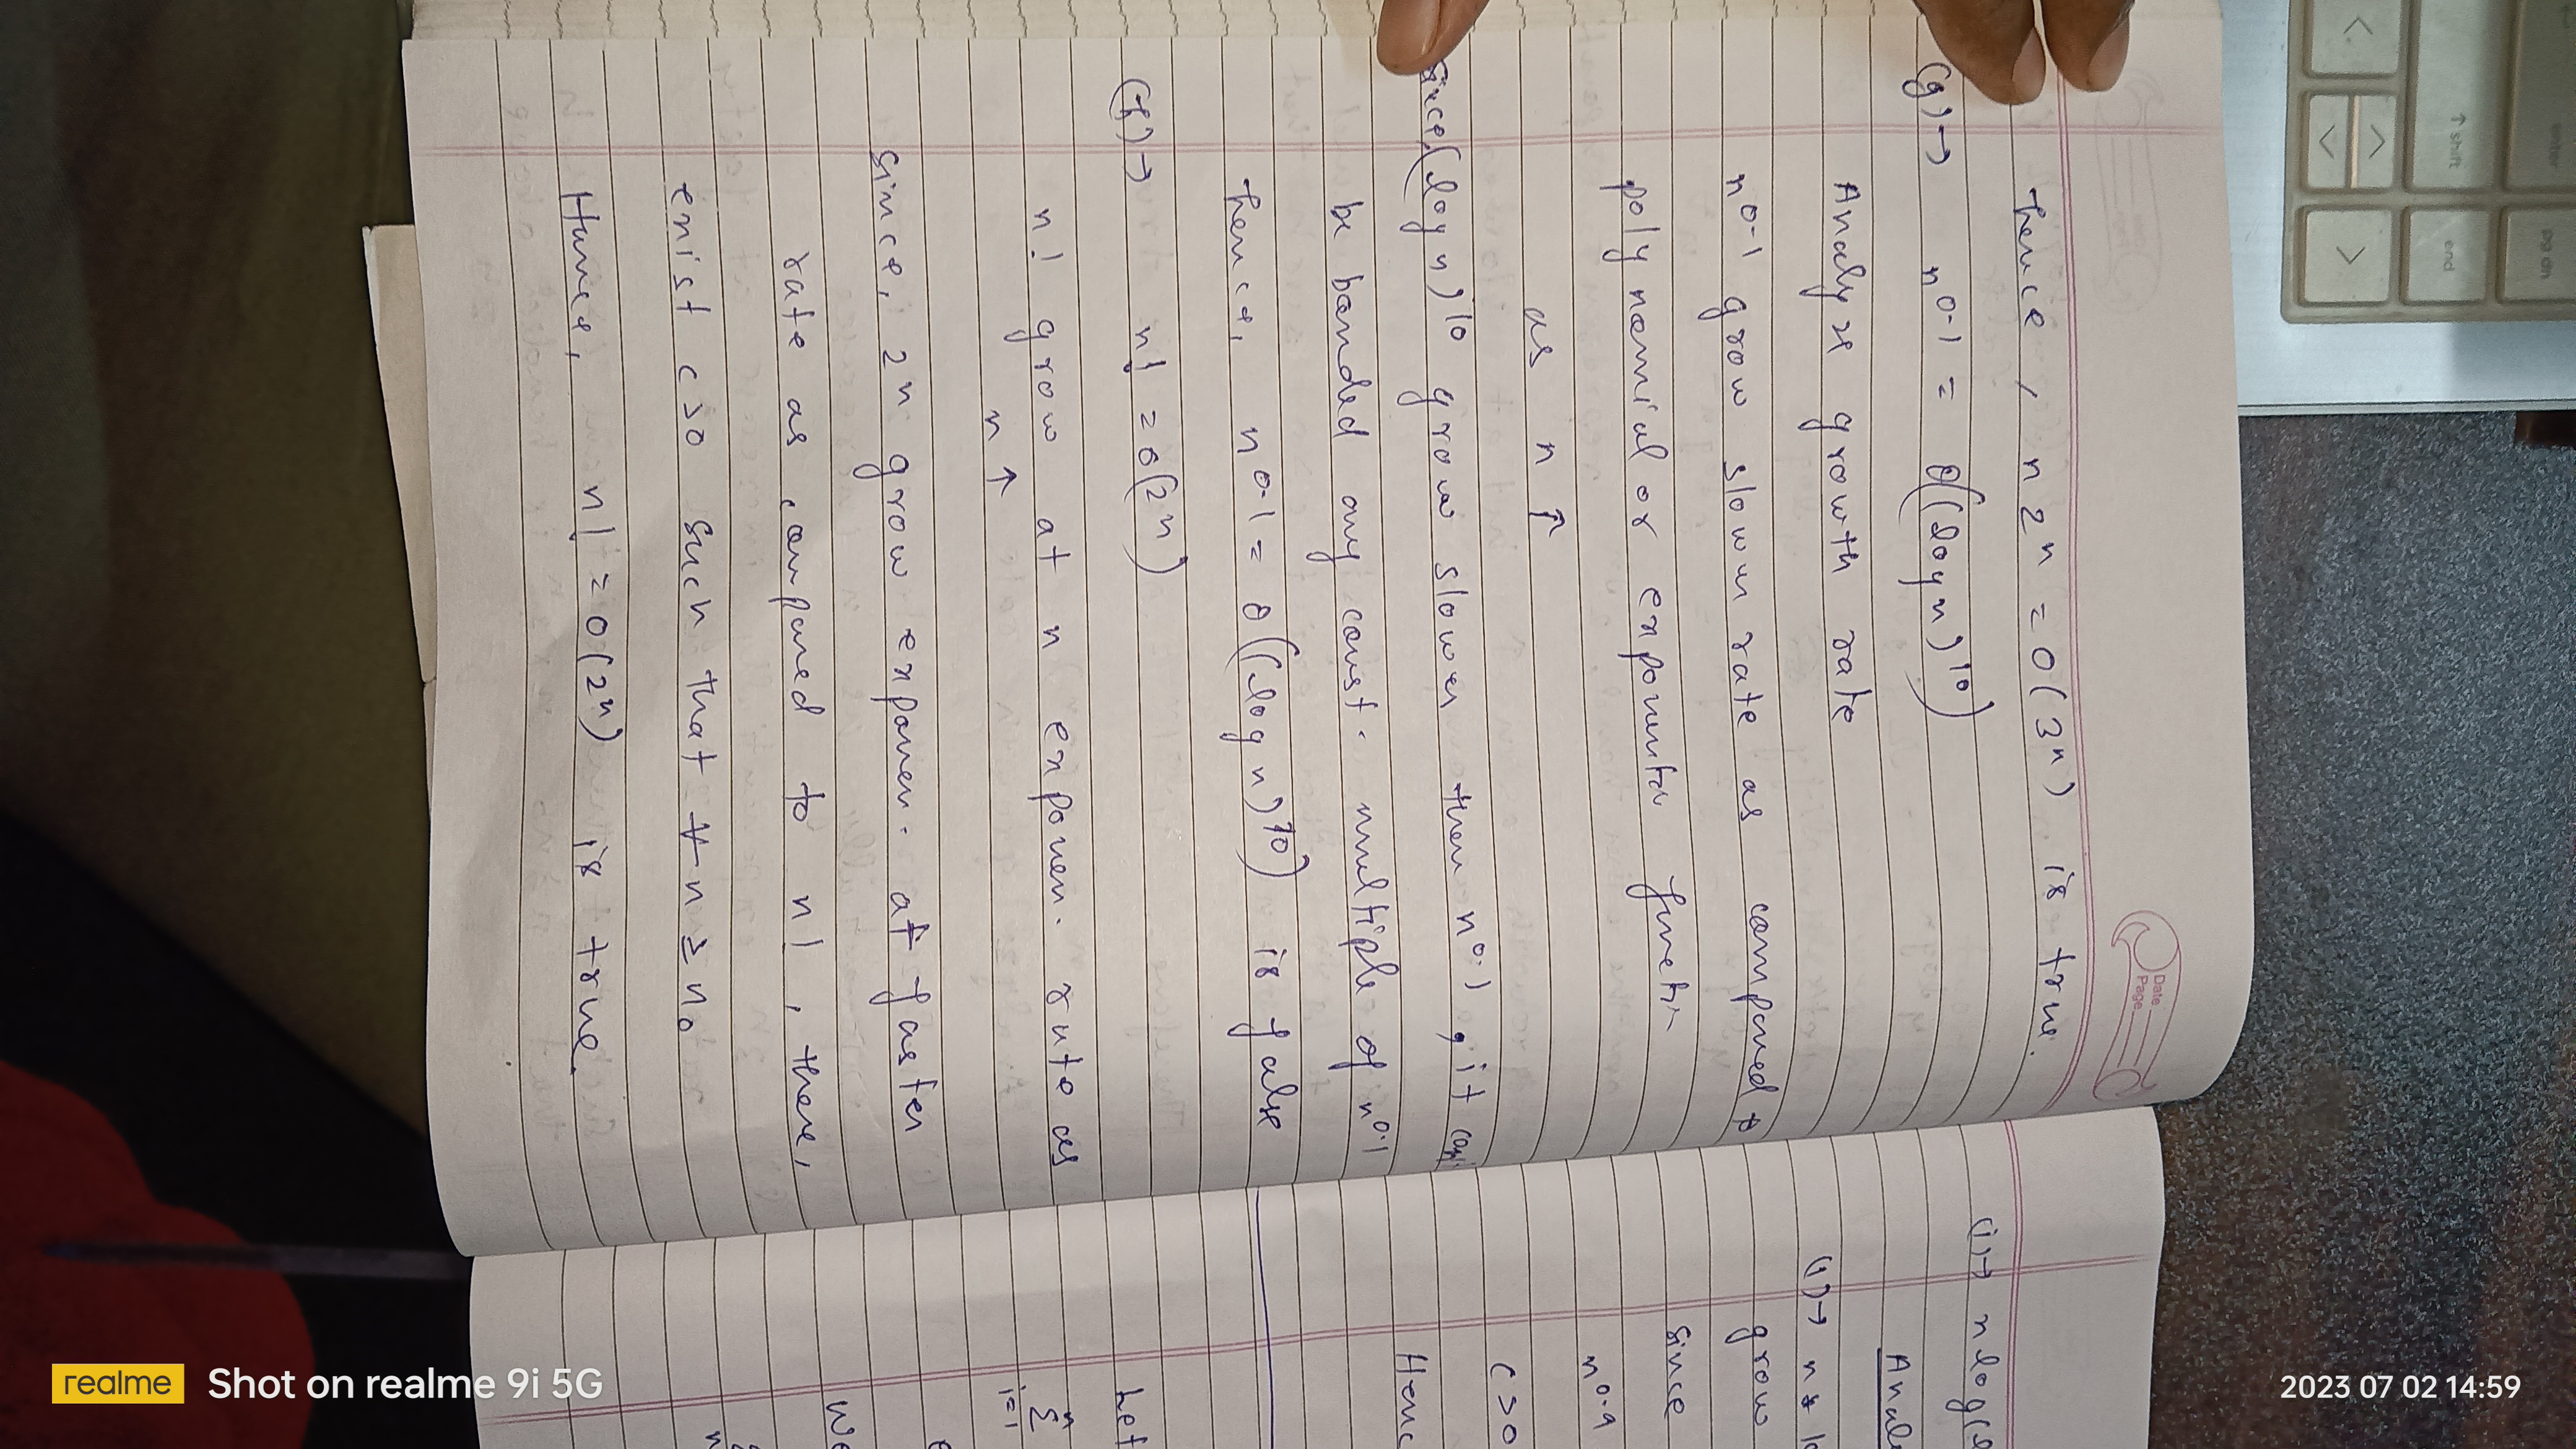 enter
pg dn
↑ shift
end
2023 07 02 14:59
Date
Page
hence, n 2^n = O(3^n) is true.
(g)→ n^0.1 = O((log n)^10)
Analyze growth rate
n^0.1 grow slower rate as compared to
polynomial or exponential
as n ↑
Since, (log n)^10 grow slower then n^0.1, it
be banded any const. multiple of n^0.1
hence, n^0.1 = O((log n)^10) is false
(h)→ n! = O(2^n)
n! grow at n exponen. rate as
n ↑
Since, 2^n grow exponen. at faster
rate as compared to n!, there,
exist c>0 such that ∀ n ≥ n₀
Hence, n! = O(2^n) is true.
(i)→ n log(
Anal
(1)→ n
grow
Since
n^0.9
c>0
Henc
Let
n
Σ
i=1
We
realme Shot on realme 9i 5G